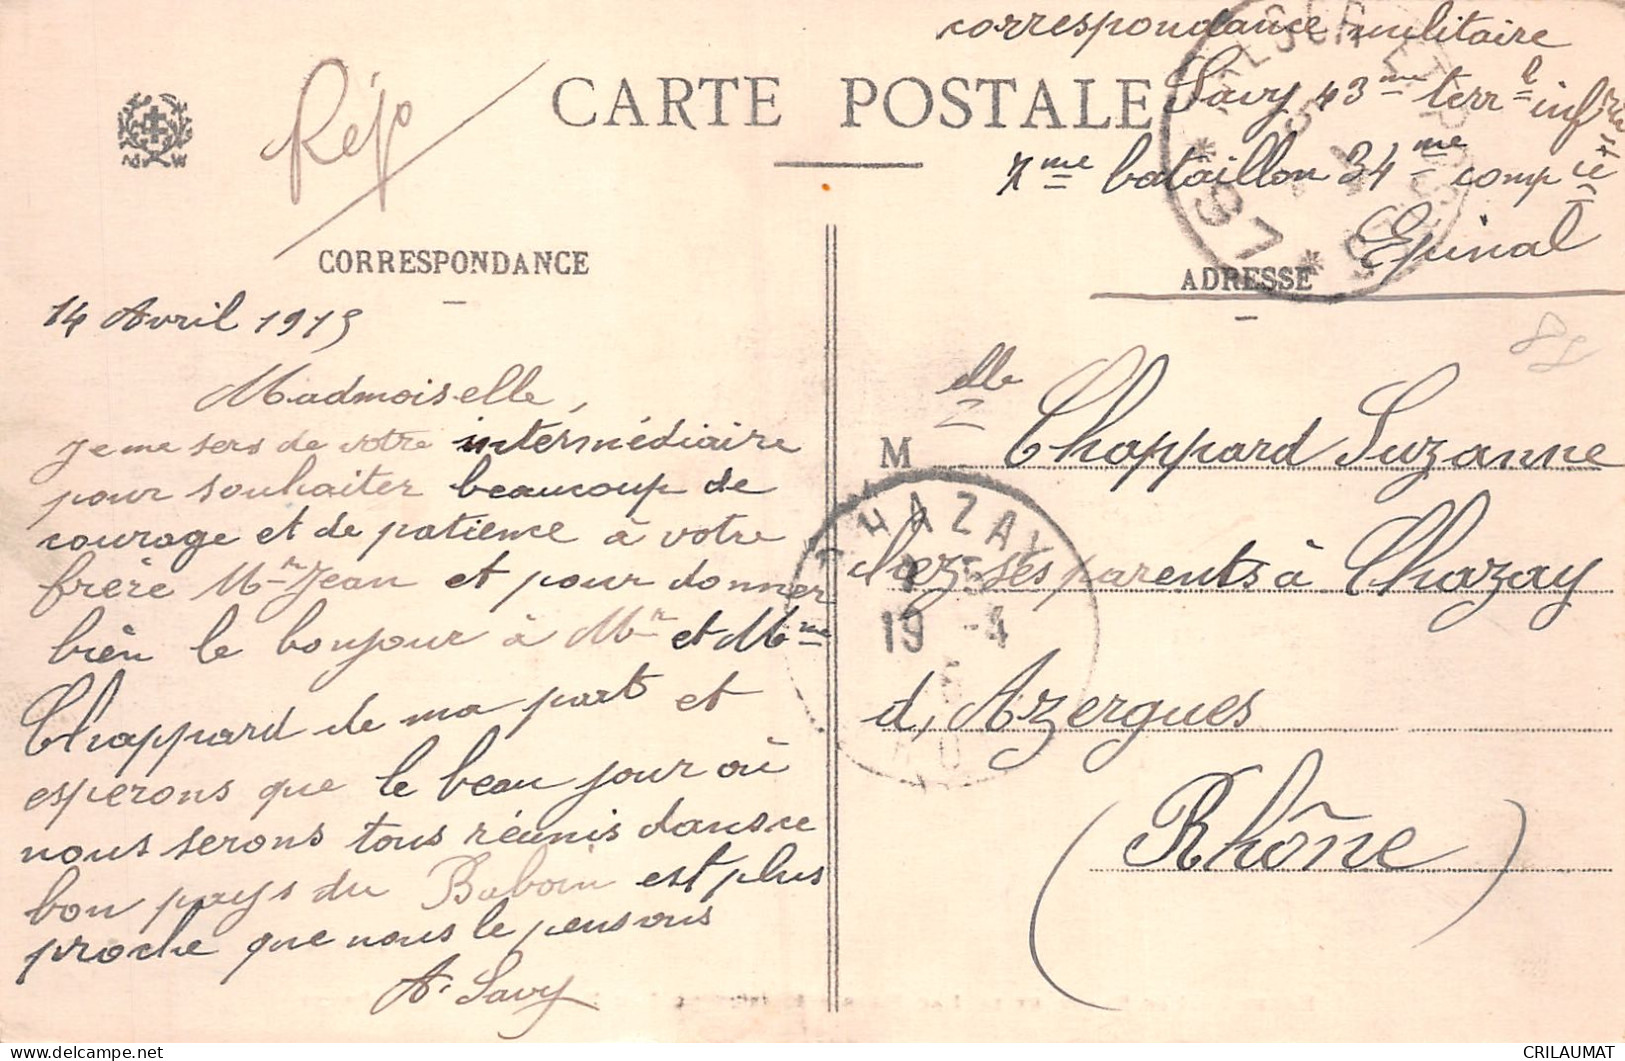 correspondance militaire
Savy 43 me terr l infrie
7me bataillon 34me compcie
Epinal
Rép
CARTE POSTALE
CORRESPONDANCE
ADRESSE
14 Avril 1915
Madmoiselle,
Je me sers de votre intermédiaire
pour souhaiter beaucoup de
courage et de patience à votre
frère Mr Jean et pour donner
bien le bonjour à Mr et Mme
Chappard de ma part et
esperons que le beau jour où
nous serons tous réunis dans ce
bon pays du Baboin est plus
proche que nous le pensons
A. Savy
M elle Chappard Suzanne
chez ses parents à Chazay
d, Azergues
(Rhône)
CHAZAY
19 -4
* 97 *
CRILAUMAT